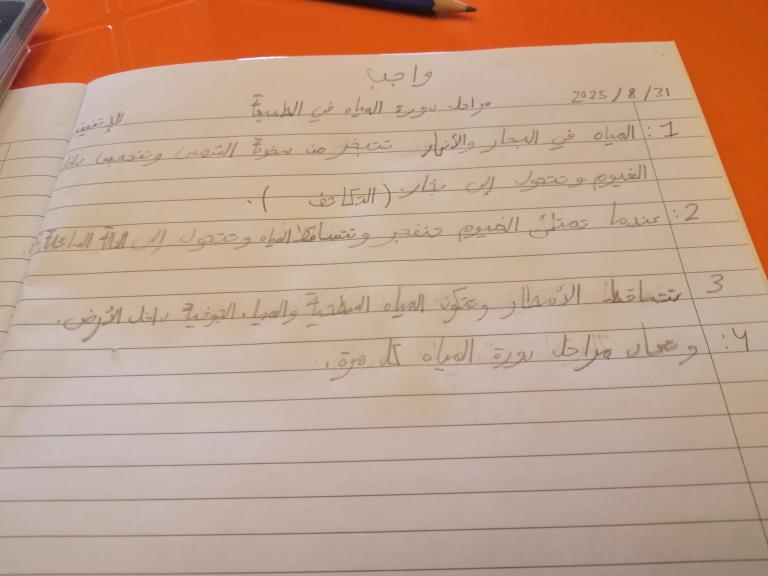 واجب
2025/8/31 مراحل دورة المياه في الطبيعة الإثنين
1: المياه في البحار والأنهار تتبخر من سخونة الشمس وتنحبس داخل
الغيوم وتتحول إلى بخار. (التكاثف).
2: عندما تمتلئ الغيوم تنفجر وتتساقط المياه وتتحول إلى الحالة السائلة.
3 تتساقط الأمطار وتتكون المياه السطحية والمياه الجوفية داخل الأرض.
4: وتعاد مراحل دورة المياه كل مرة.